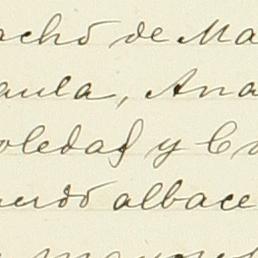 acho de Ma
aula, Ana
oledad y C
uerdo albace